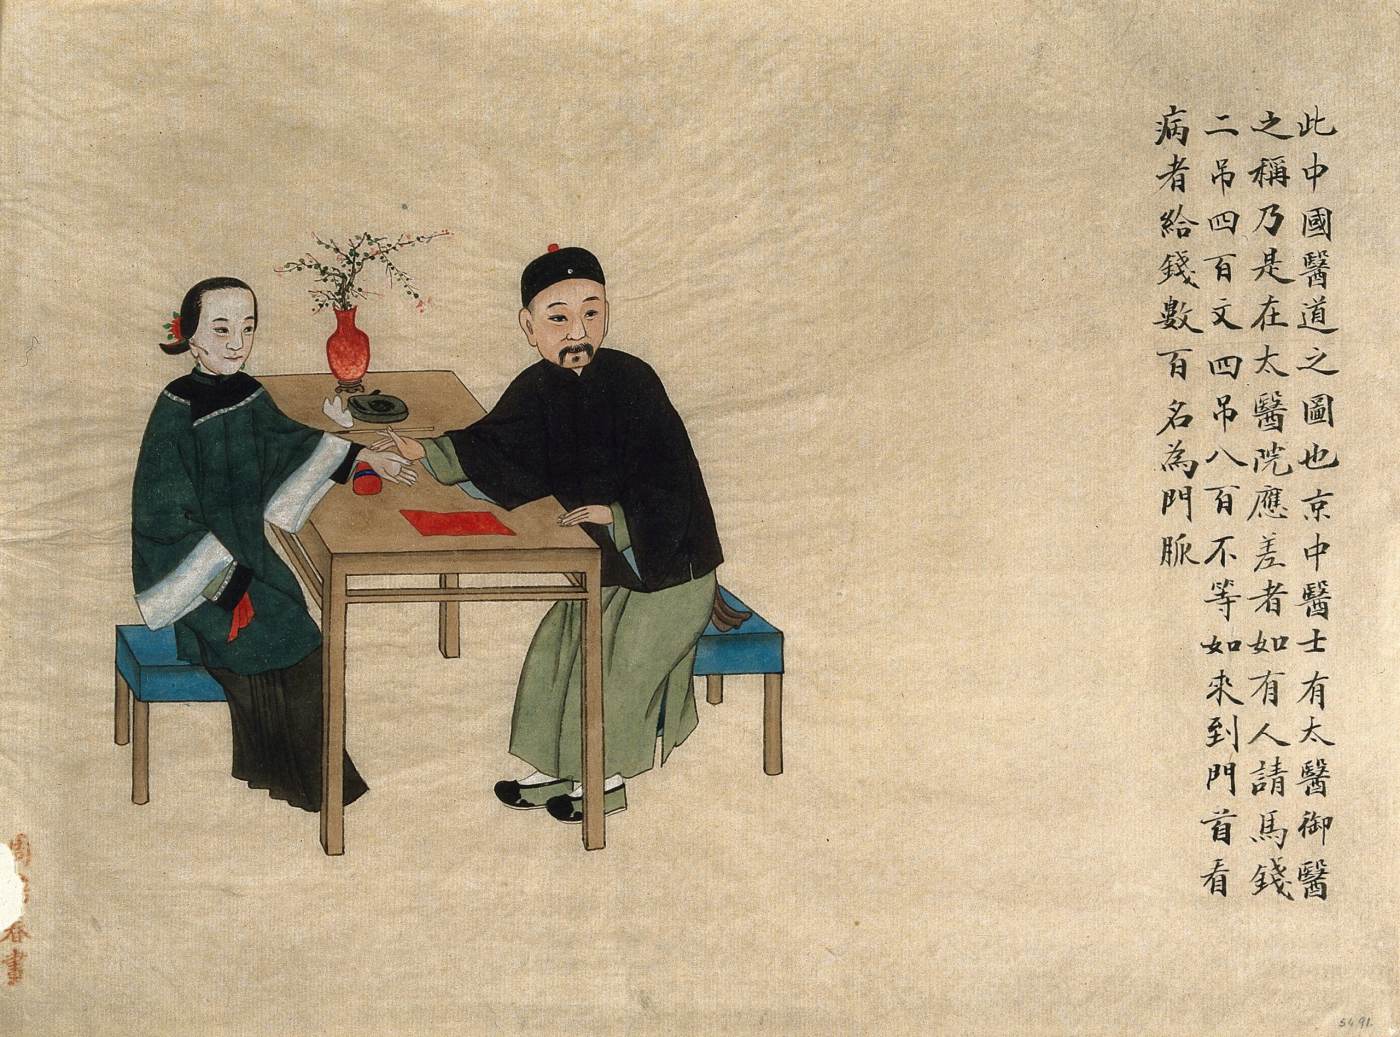 此中國醫道之圖也京中醫士有太醫御醫
之稱乃是在太醫院應差者如有人請馬錢
二吊四百文四吊八百不等如來到門首看
病者給錢數百名為門脈
周春畫
5491.